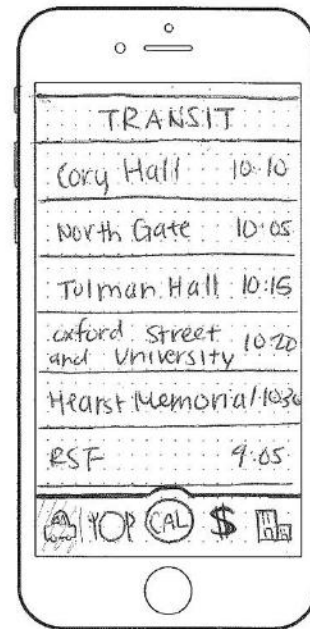 TRANSIT
Cory Hall 10:10
North Gate 10:05
Tolman Hall 10:15
oxford Street
and University 10:20
Hearst Memorial 10:30
RSF 9:05
CAL $